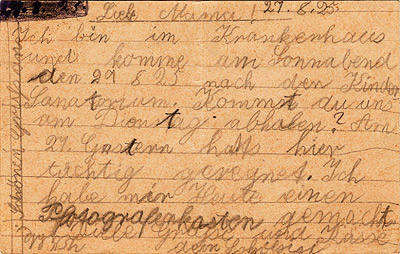 Lieb Mama! 27.8.25
Ich bin im Krankenhaus
und komme am Sonnabend
den 29 8.25 nach den Kinder
Sanatorium. Kommst du uns
am Dienstag abholen? Am
27. Gestern hatts hier
tüchtig geregnet. Ich
habe mir Heute einen
kasten gemacht
Liebe Grüße und Küsse
dein